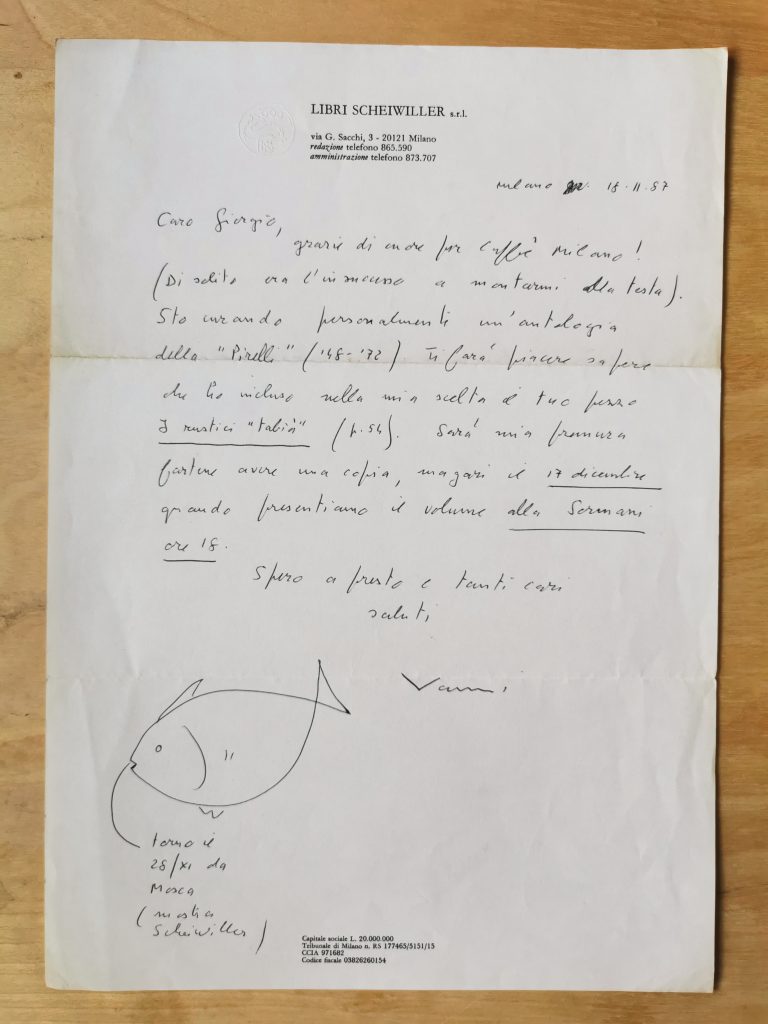 LIBRI SCHEIWILLER s.r.l.
via G. Sacchi, 3 - 20121 Milano
redazione telefono 865.590
amministrazione telefono 873.707
Milano 18.11.87
Caro Giorgio,
grazie di cuore per Caffè Milano!
(Di solito era l'insuccesso a montarmi alla testa).
Sto curando personalmente un'antologia
della "Pirelli" ('48-'72). Ti farà piacere sapere
che ho incluso nella mia scelta il tuo pezzo
I rustici "tabià" (p.54). Sarà mia premura
fartene avere una copia, magari il 17 dicembre
quando presentiamo il volume alla Sormani
ore 18.
Spero a presto e tanti cari
saluti
Vanni
torno il
28/XI da
Mosca
(mostra
Scheiwiller)
Capitale sociale L. 20.000.000
Tribunale di Milano n. RS 177465/5151/15
CCIA 971682
Codice fiscale 03826260154